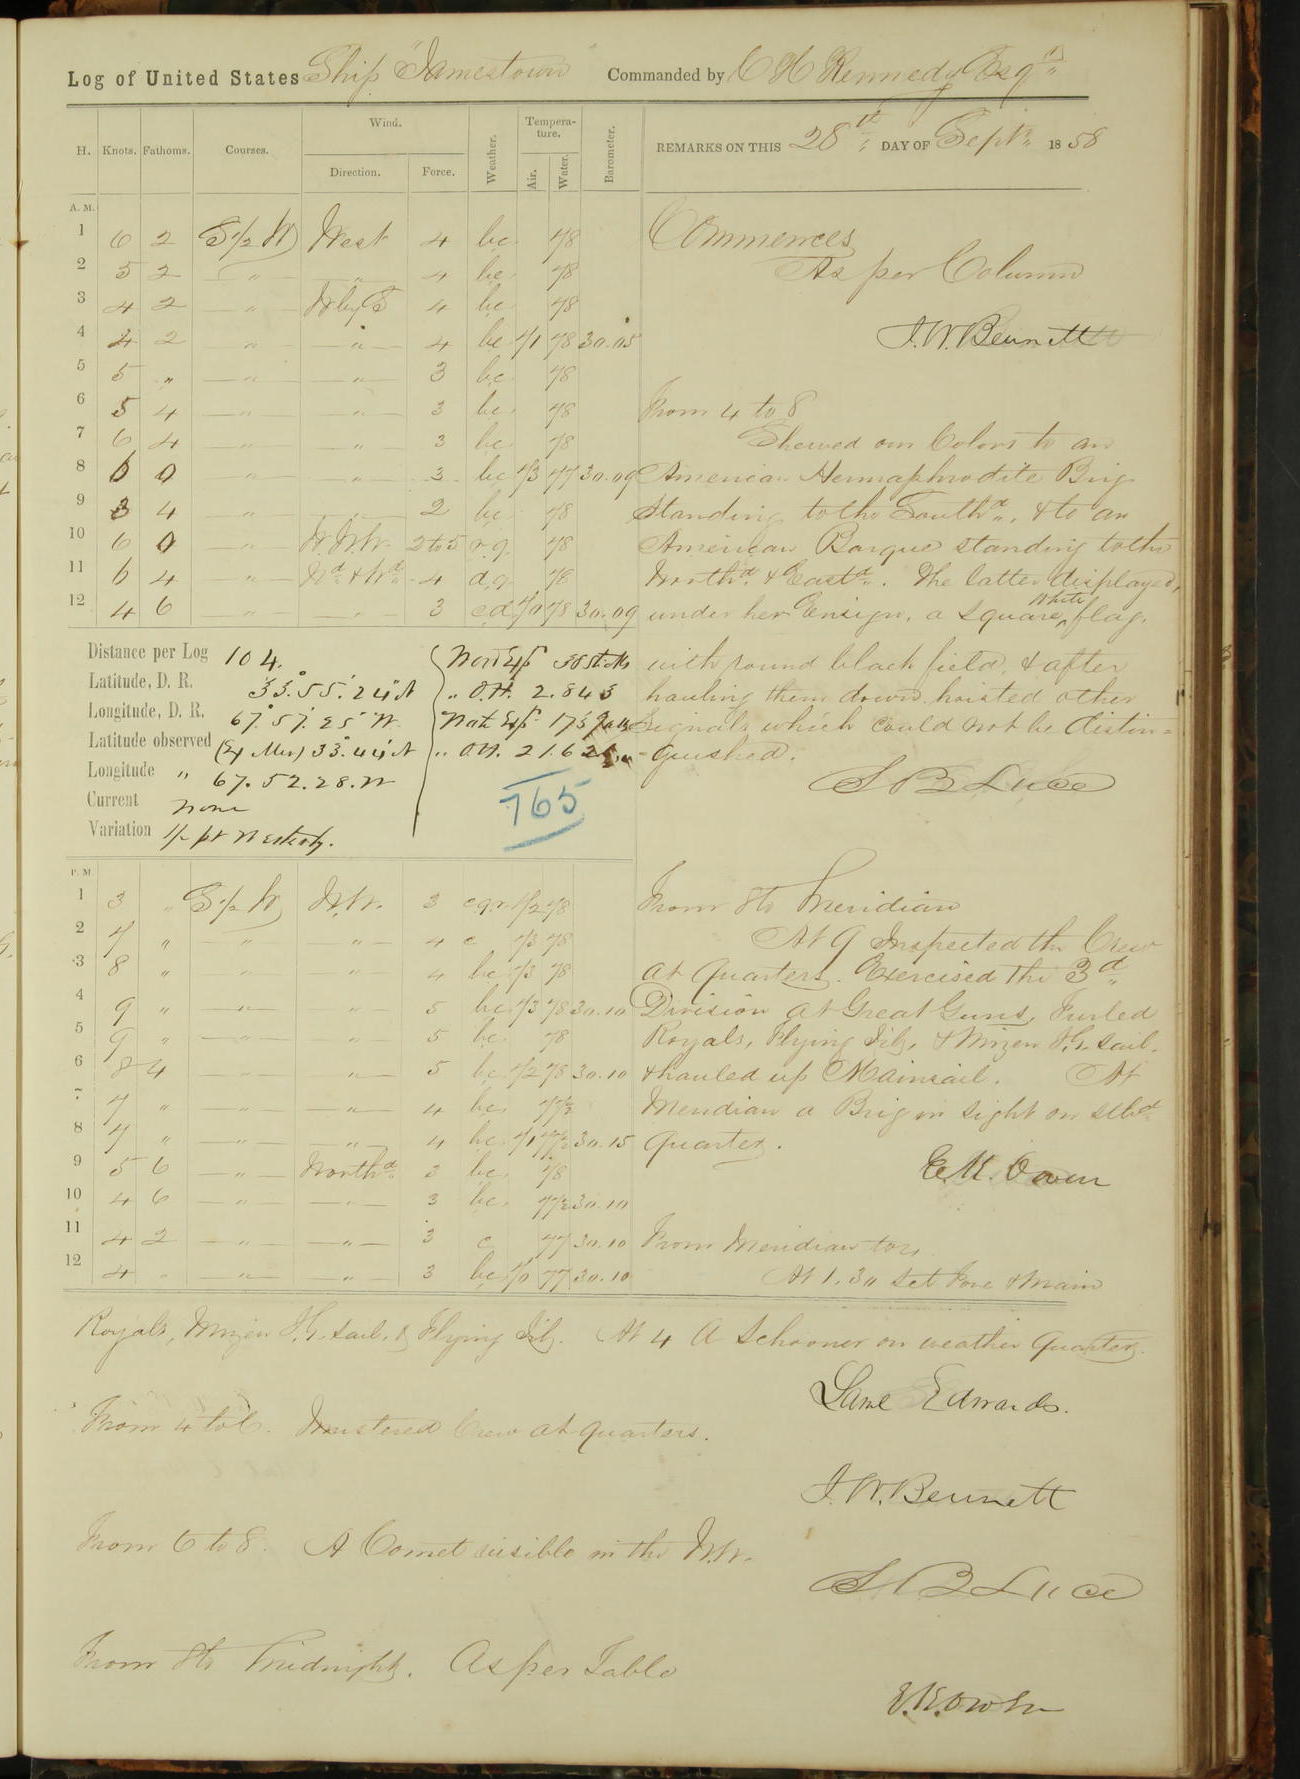 Log of United States Ship "Jamestown" Commanded by C H Kennedy Esqr
H. Knots. Fathoms. Courses. Wind. Direction. Force. Weather. Temperature. Air. Water. Barometer. REMARKS ON THIS 28th DAY OF Sept. 1858
A. M.
1 6 2 S 1/2 W West 4 bc 78
2 5 2 " " 4 bc 78
3 4 2 " 4 bc 78
4 4 2 " " 4 bc 71 78 30.05
5 5 " " " 3 bc 78
6 5 4 " " 3 bc 78
7 6 4 " " 3 bc 78
8 6 0 " " 3 bc 73 77 30.09
9 3 4 " 2 bc 78
10 6 0 " W.N.W. 2 to 5 r.q. 78
11 6 4 " Nd & Wd 4 d.q. 78
12 4 6 " 3 c.d. 70 78 30.09
Commences
As per Column
J. W. Bennett
From 4 to 8
Shewed our Colors to an
American Hermaphrodite Brig
standing to the Southd., & to an
American Barque standing to the
Northd. & Eastd. The latter displayed,
under her Ensign, a square white flag,
with round black field, & after
hauling them down hoisted other
signals which could not be distin=
guished.
S B Luce
Distance per Log 104.
Latitude, D. R. 33°.55'.24" N
Longitude, D. R. 67°.57'.25" W.
Latitude observed (Mer) 33°.44' N
Longitude " 67.52.28. W
Current None
Variation 1/2 pt Westerly.
" O.H. 2.843
" O.H.
765
P. M.
1 3 " S 1/2 W N.W. 3 c.q.r. 72 78
2 7 " " " 4 c 73 78
3 8 " " " 4 bc 73 78
4 9 " " " 5 bc 73 78 30.10
5 9 " " " 5 bc 78
6 8 4 " " 5 bc 72 78 30.10
7 7 " " " 4 bc 77 1/2
8 7 " " " 4 bc 71 77 1/2 30.15
9 5 6 " Northd 3 bc 78
10 4 6 " " 3 bc 77 1/2 30.10
11 4 2 " " 3 c 77 30.10
12 4 " " 3 bc 70 77 30.10
From 8 to Meridian
At 9 Inspected the Crew
at Quarters. Exercised the 3d
Division at Great Guns, Furled
Royals, Flying Jib, & Mizen T.G. sail.
& hauled up Mainsail. At
Meridian a Brig in sight on stbd
quarter.
E. K. Owen
From Meridian to 4
At 1.30 set Fore & Main
Royals, Mizen T.G. sail, & Flying Jib. At 4 A Schooner on weather quarter.
Saml Edwards.
From 4 to 6. Mustered Crew at quarters.
J. W. Bennett
From 6 to 8. A Comet visible in the N.W.
S B Luce
From 8 to Midnight. As per Table
E. K. Owen